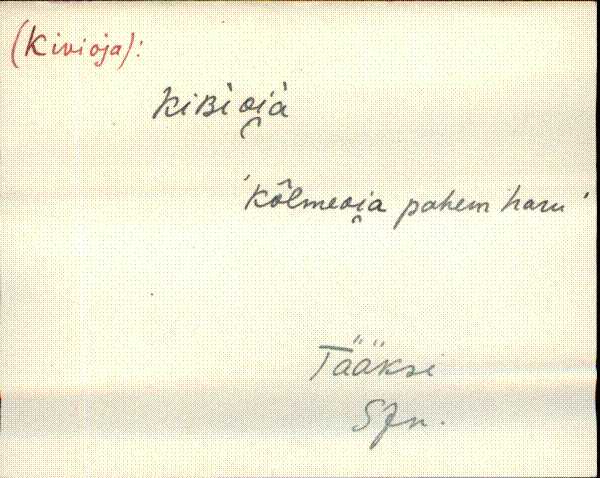 (Kivioja):
kiBi oi̯a
'Kõlmeoi̯a pahem haru'
Tääksi
SJn.